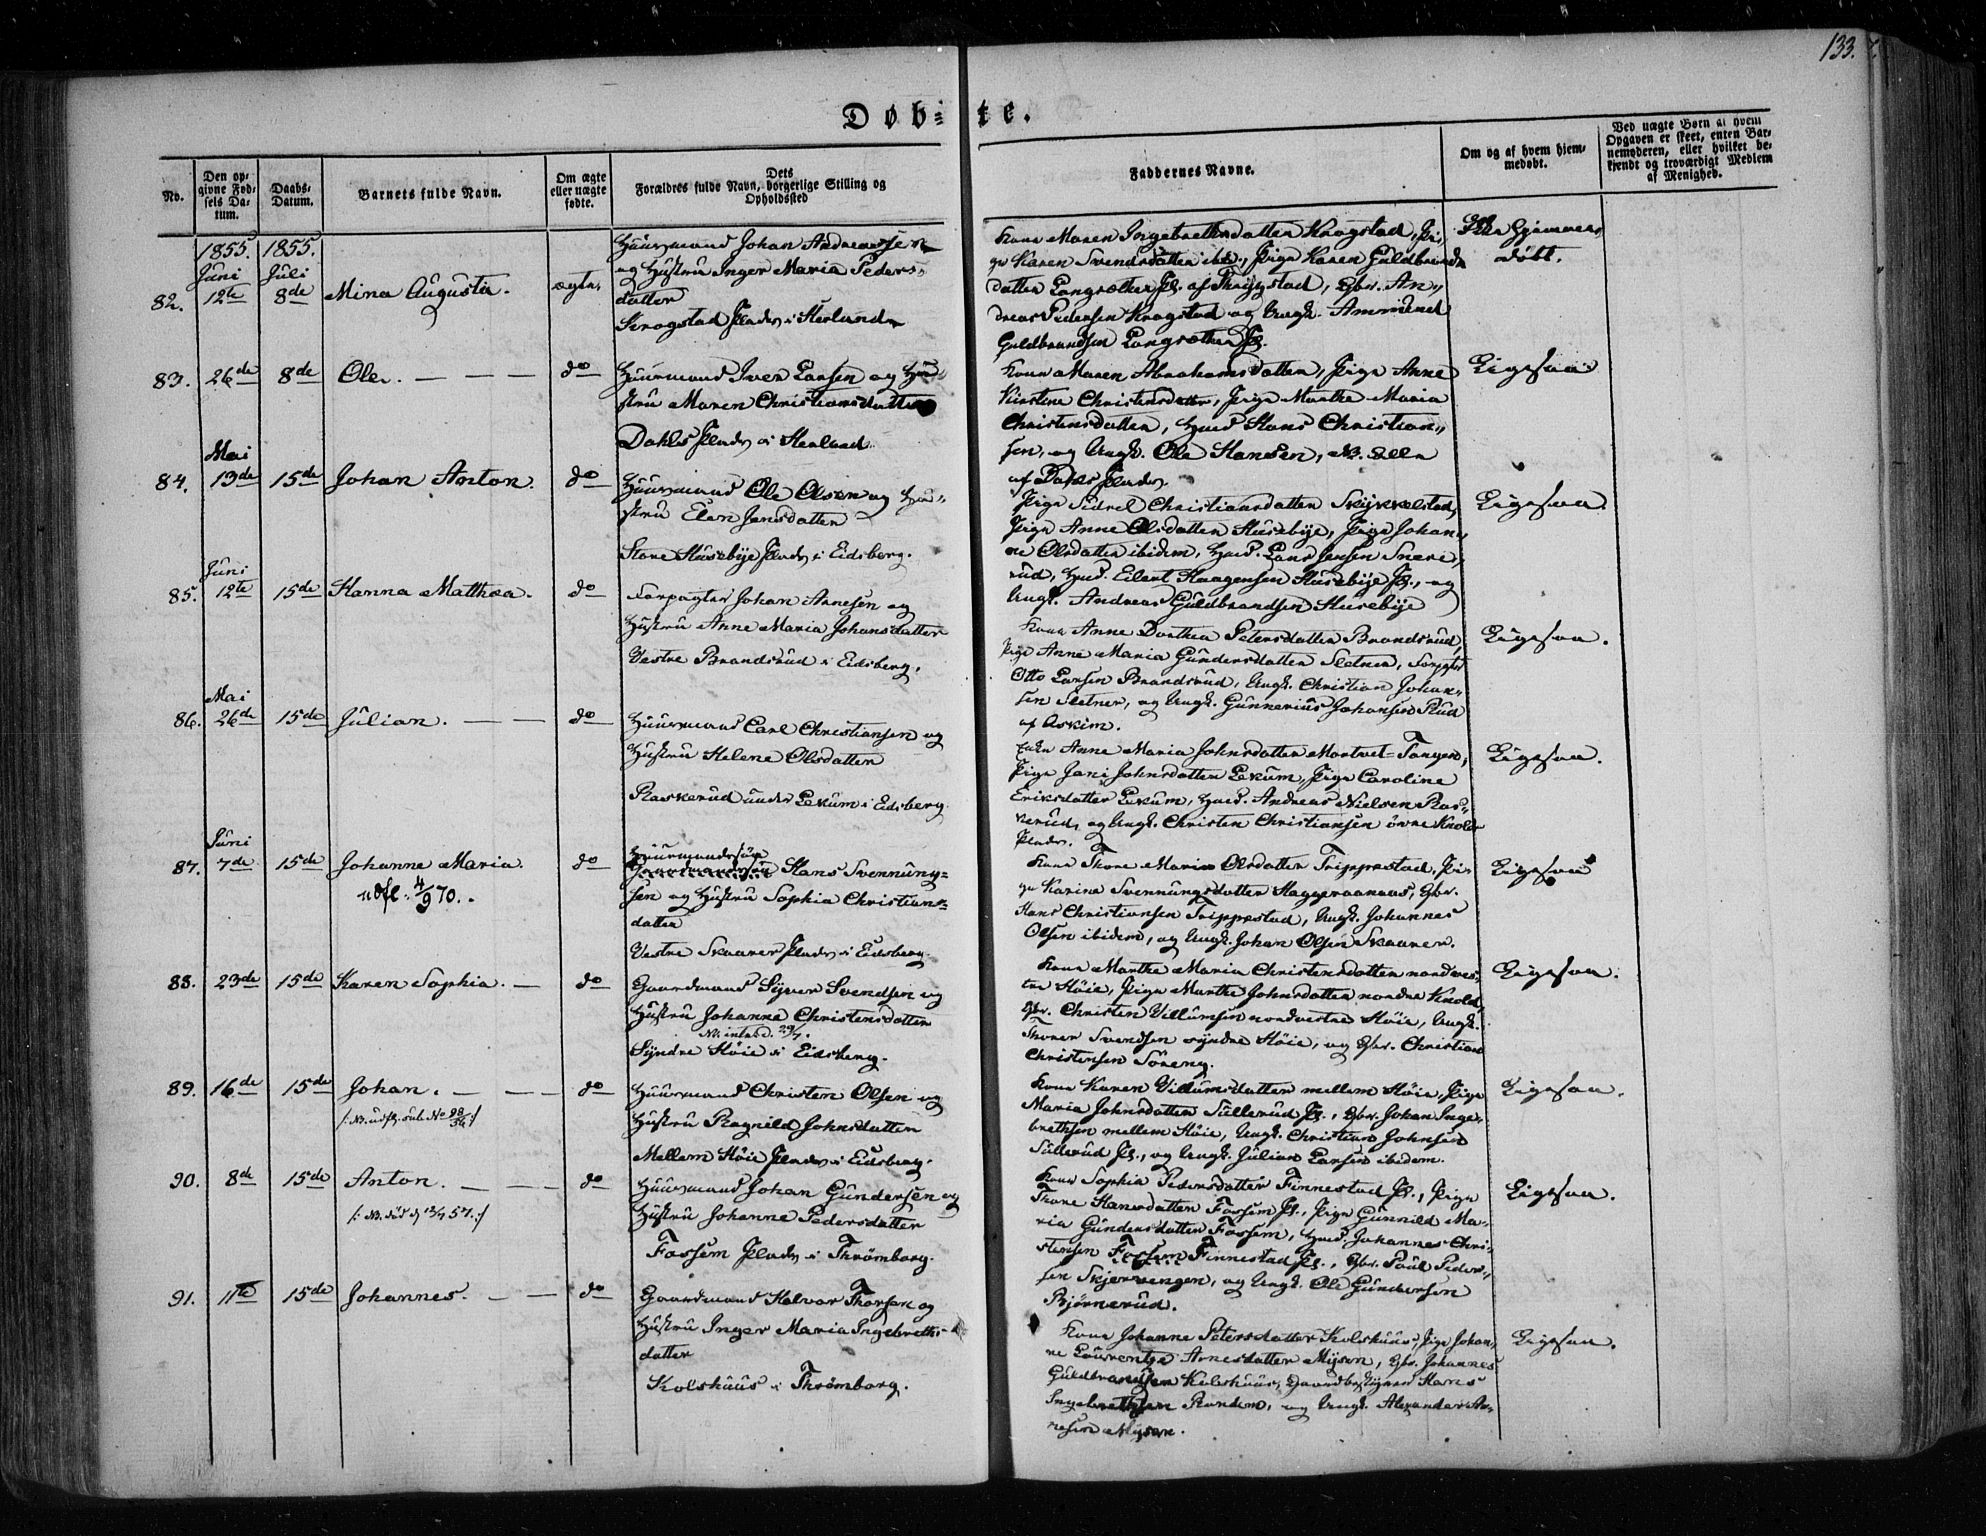 133.
Døb=te.
No.
Den op-
givne Fød-
sels Da-
tum.
Daabs-
Datum.
Barnets fulde Navn.
Om ægte
eller uægte
fødte.
Dets
Forældres fulde Navn, borgerlige Stilling og
Opholdssted
Faddernes Navne.
Om og af hvem hjem-
medøbt.
Ved uægte Børn af hvem
Opgaven er skeet, enten Bar-
nemoderen, eller hvilket be-
kjendt og troværdigt Medlem
af Menighed.
1855. 1855.
Juni Juli
82. 12te 8de Mina Augusta. ægte.
Huusmand Johan Andreassen
og Hustru Inger Maria Peders-
datter
Krogstad Plads i Herland
Kone Maren Ingebretsdatter Krogstad, Pi-
ge Karen Svendsdatter ibd., Pige Karen Guldbrands
datter Langsæther Pl. af Thrygstad, Gbr. An-
dreas Pedersen Krogstad og Ungk. Ammund
Guldbrandsen Langsæther Pl.
Ikke Hjemme-
døbt.
83. 26de 8de Ole. — — — do
Huusmand Iver Larsen og Hu-
stru Maren Christiansdatter
Dahls Plads i Herland
Kone Maren Abrahamsdatter, Pige Anne
Kirstine Christensdatter, Pige Marthe Maria
Christensdatter, Huusmd Hans Christian-
sen, og Ungk. Ole Hansen, NB. Alle
af Dahls Plads.
Ligesaa
Mai
84. 13de 15de Johan Anton. do
Huusmand Ole Olsen og Hu-
stru Elen Jensdatter
Store Husebye Plads i Eidsberg.
Pige Sidsel Christiansdatter Skykkelstad,
Pige Anne Olsdatter Husebye, Pige Johan-
ne Olsdatter ibidem, Huusmd. Lars Jensen Snare-
rud, Huusmd. Eilert Haagensen Husebye Pl., og
Ungk. Andreas Guldbrandsen Husebye
Ligesaa.
Juni
85. 12te 15de Hanna Mathea. do
Forpagter Johan Arnesen og
Hustru Anne Maria Johansdatter
Vestre Brandsrud i Eidsberg.
Kone Anne Dorthea Petersdatter Brandsrud,
Pige Anne Maria Gundersdatter Sletner, Forpgtr
Otto Larsen Brandsrud, Ungk. Christian Johan-
sen Sletner, og Ungk. Gunnerius Johansen Rud
af Askim.
Ligesaa.
Mai
86. 26de 15de Julian. — — do
Huusmand Carl Christiansen og
Hustru Helene Olsdatter
Raskerud under Lekum i Eidsberg.
Anne Maria Johnsdatter Mortvet-Tangen,
Pige Jani Johnsdatter Lekum, Pige Caroline
Eriksdatter Lekum, Huusmd. Andreas Nielsen Ras-
kerud, og Ungk. Christen Christiansen øvre Knold
Plads.
Ligesaa.
Juni
87. 7de 15de Johanne Maria do
udfl. 4/9 70.
Huusmandsøn
Gaardmandsøn Hans Svennung-
sen og Hustru Sophia Christians-
datter
Vestre Skaarer Plads i Eidsberg.
Kone Thore Maria Olsdatter Trippestad, Pi-
ge Karine Svennungsdatter Haggeraanaas, Gbr.
Hans Christiansen Trippestad, Ungk. Johannes
Olsen ibidem, og Ungk. Johan Olsen Skaarer.
Ligesaa
88. 23de 15de Karen Sophia. — do
Gaardmand Syver Svendsen og
Hustru Johanne Christensdatter
NB introd. 29/7.
Syndre Høie i Eidsberg.
Kone Marthe Maria Christensdatter nordves-
tre Høie, Pige Marthe Johnsdatter nordre Knold,
Gbr. Christen Villumsen nordvestre Høie, Ungk.
Thorer Svendsen syndre Høie, og Gbr. Christian
Christensen Søreng.
Ligesaa.
89. 16de 15de Johan. — — do
/: NB. udfl. sub. No 98/56 :/
Huusmand Christen Olsen og
Hustru Ragnild Johnsdatter
Mellem Høie Plads i Eidsberg.
Kone Karen Villumsdatter mellem Høie, Pige
Maria Johnsdatter Sullerud Pl., Gbr. Johan Inge-
brethsen mellem Høie, Ungk. Christian Johnsen
Sullerud Pl., og Ungk. Julian Larsen ibidem.
Ligesaa.
90. 8de 15de Anton. — — do
/: NB. død 57. :/
Huusmand Johan Gundersen og
Hustru Johanne Pedersdatter
Fossem Plads i Thrømborg.
Kone Sophia Pedersdatter Finnestad Pl., Pige
Thore Hansdatter Fossem Pl., Pige Gunnild Ma-
ria Gundersdatter Fossem, Huusmd Johannes Chri-
stensen Fossem Finnestad Pl., Gbr. Poul Peder-
sen Skjervengen, og Ungk. Ole Gundersen
Bjørnerud.
Ligesaa.
91. 11te 15de Johannes. — — do
Gaardmand Halvor Thorsen og
Hustru Inger Maria Ingebreths-
datter
Kolshuus i Thrømborg.
Kone Johanne Petersdatter Kolshuus, Pige Johan-
ne Laurentse Arnesdatter Mysen, Gbr. Johannes
Guldbrandsen Kolshuus, Gaardbestyrer Hans
Ingebrethsen Ramdem, og Ungk. Alexander Ar-
nesen Mysen.
Ligesaa.